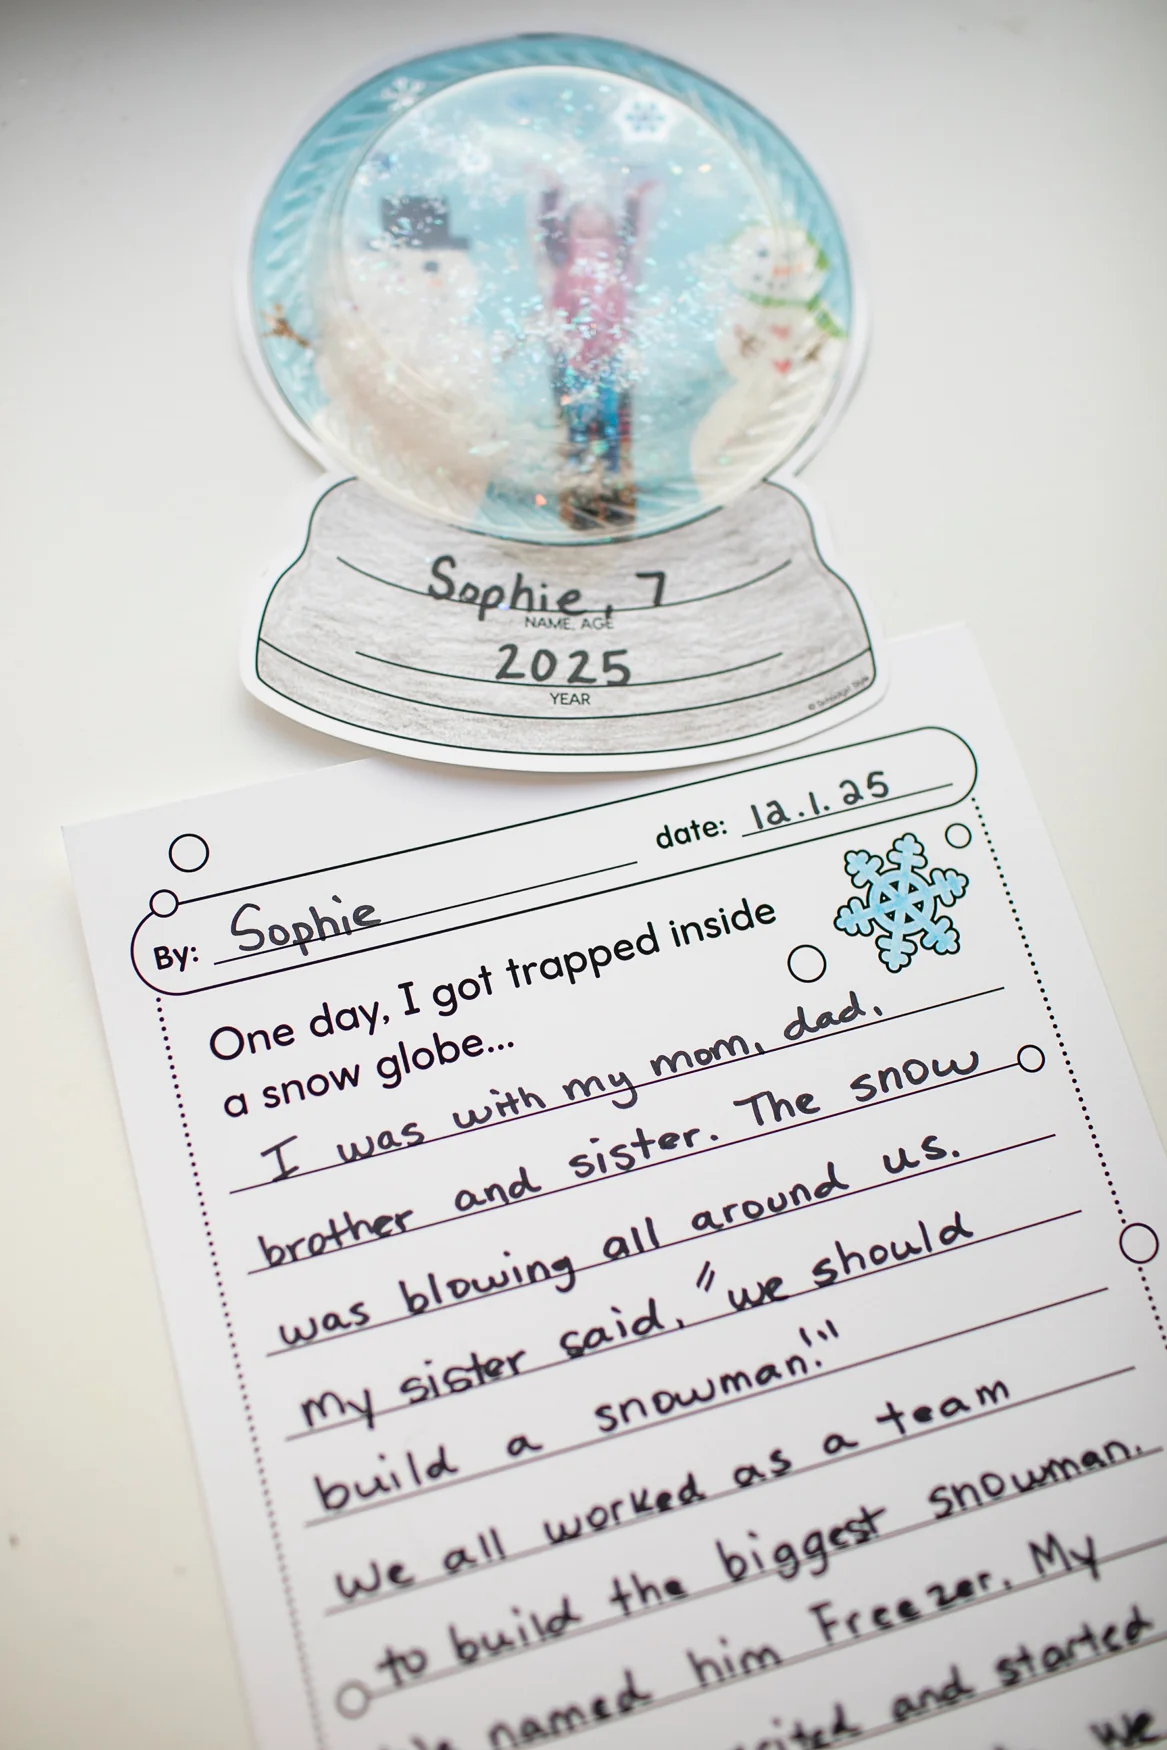 Sophie, 7
NAME, AGE
2025
YEAR
date: 12.1.25
By: Sophie
One day, I got trapped inside
a snow globe...
I was with my mom, dad,
brother and sister. The snow
was blowing all around us.
my sister said, "we should
build a snowman!"
we all worked as a team
to build the biggest snowman.
named him Freezer. My
and started
we